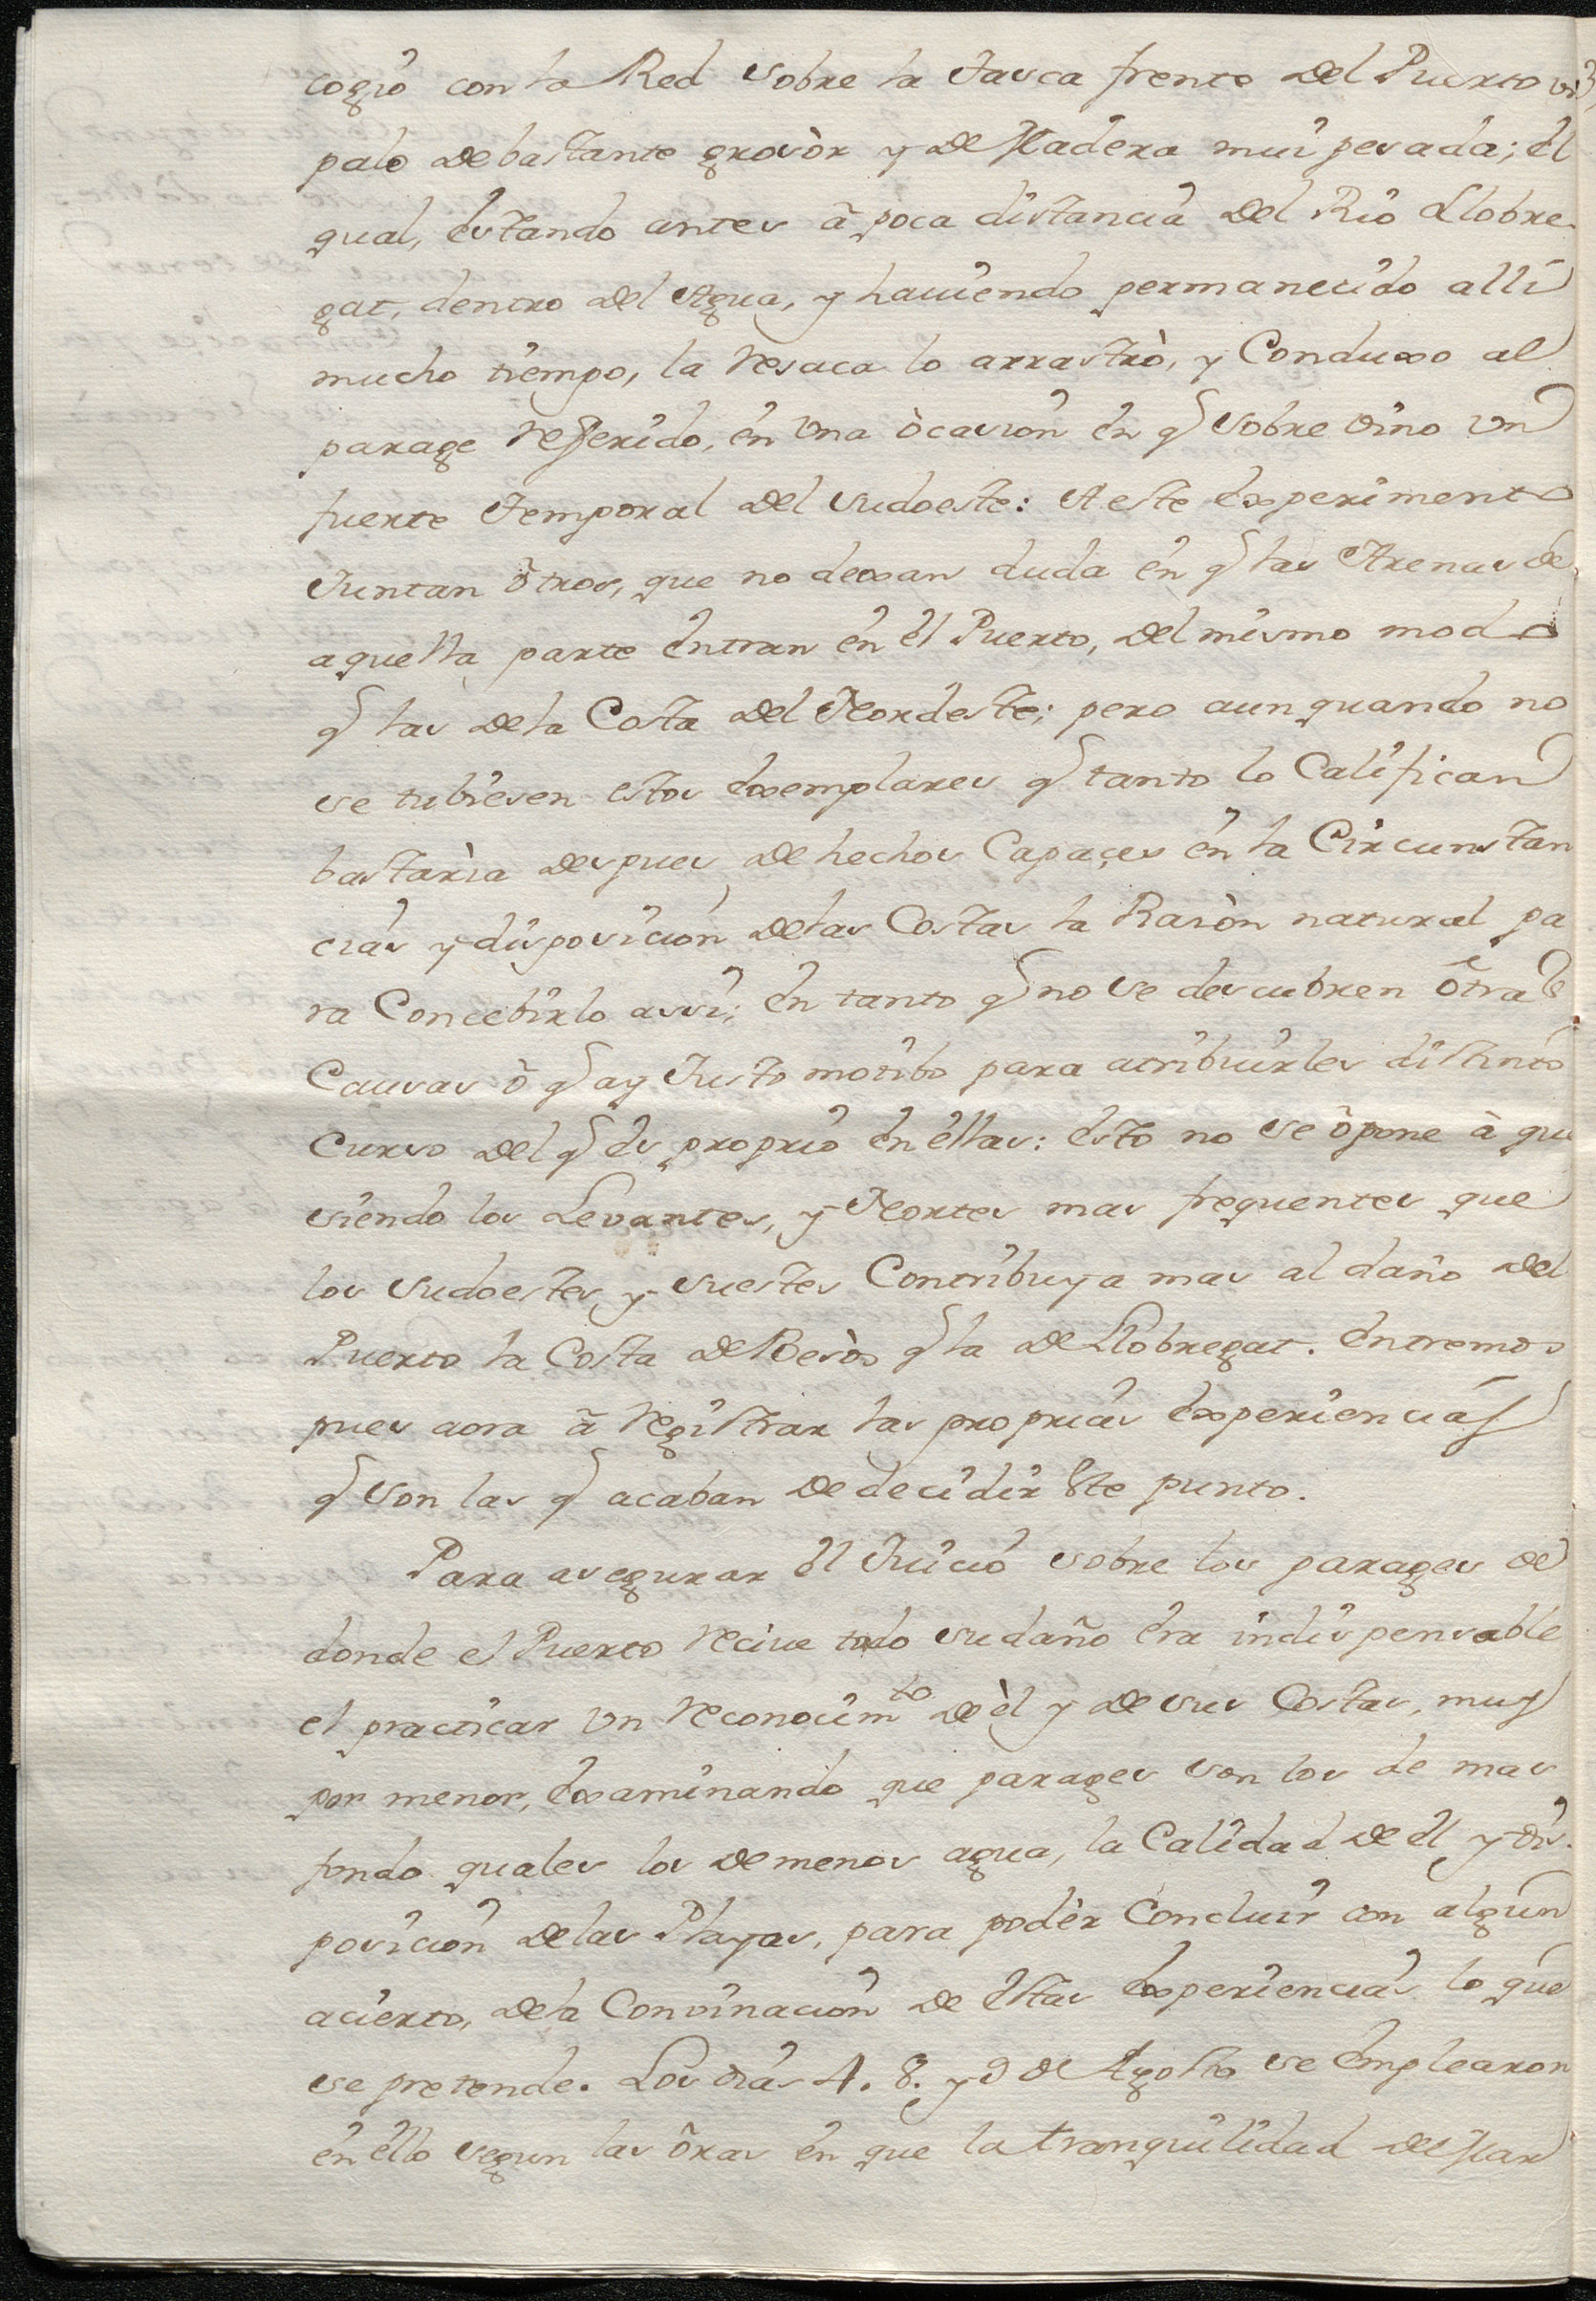 cogió con la Red sobre la Tasca frente del Puerto un
palo de bastante grosòr y de Madera mui pesada; él
qual, éstando antes ã poca distancia del Rio Llobre
gat, dentro del Agua, y haviendo permanecido alli
mucho tiempo, la resaca lo arrastrò, y Conduxo al
parage referido, én una òcasion én q̃ sobre vino un
fuerte Temporal del sudoeste: A este éxperimento
Juntan õtros, que no dexan duda én q̃ las Arenas de
aquella parte éntran én él Puerto, del mismo modo
q̃ las de la Costa del Nordeste; pero aun quando no
se tubiesen estos éxemplares q̃ tanto lo Califican
bastarìa despues de hechos Capaçes én la Circunstan
cias y disposicion de las Costas la Rasòn natural pa
ra Concebirlo assi; én tanto q̃ no se descubren õtras
Causas õ q̃ ay Justo motibo para atribuirles distinto
Curso del q̃ és proprio én éllas: ésto no se õpone à que
siendo los Levantes, y Nortes mas frequentes que
los sudoestes, y suestes Contribuya mas al daño del
Puerto la Costa de Besòs q̃ la de Llobregat. Entremos
pues aora ã registrar las proprias éxperiencias
q̃ son las q̃ acaban de decidir éste punto.
Para asegurar él Juicio sobre los parages de
donde el Puerto recive todo su daño éra indispensable
el practicar un reconocimto de èl y de sus Costas, muy
por menor, éxaminando que parages son los de mas
fondo quales los de menos agua, la Calidad de él y dis-
posicion de las Playas, para podèr Concluir con algun
acierto, de la Convinacion de éstas éxperiencias lo que
se pretende. Los dias 4. 8. y 9 de Agosto se émplearon
én éllo segun las õras én que la tranquilidad del Mar